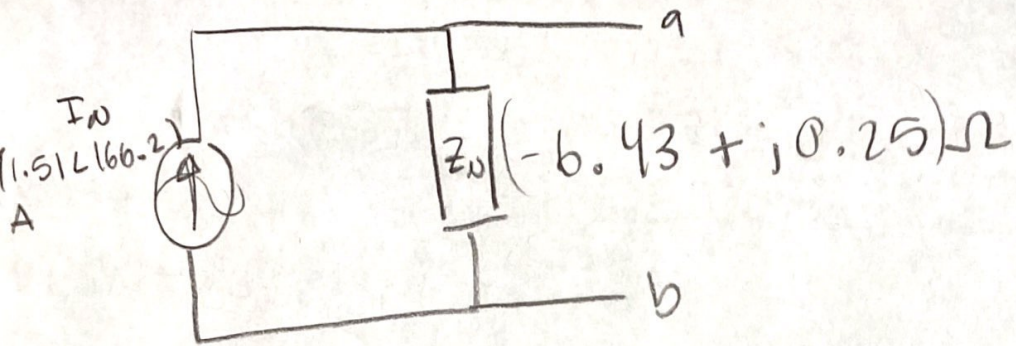 a
I_N
(1.51∠166.2)
A
Z_N
(-6.43 + j0.25)Ω
b